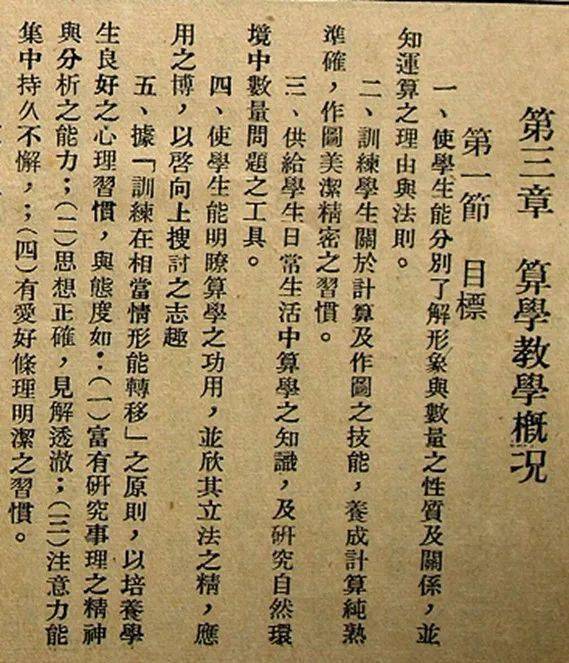 第三章　算學教學概况
第一節　目標
一、使學生能分別了解形象與數量之性質及關係，並
知運算之理由與法則。
二、訓練學生關於計算及作圖之技能，養成計算純熟
準確，作圖美潔精密之習慣。
三、供給學生日常生活中算學之知識，及研究自然環
境中數量問題之工具。
四、使學生能明瞭算學之功用，並欣其立法之精，應
用之博，以啓向上搜討之志趣
五、據「訓練在相當情形能轉移」之原則，以培養學
生良好之心理習慣，與態度如：(一)富有研究事理之精神
與分析之能力；(二)思想正確，見解透澈；(三)注意力能
集中持久不懈，；(四)有愛好條理明潔之習慣。